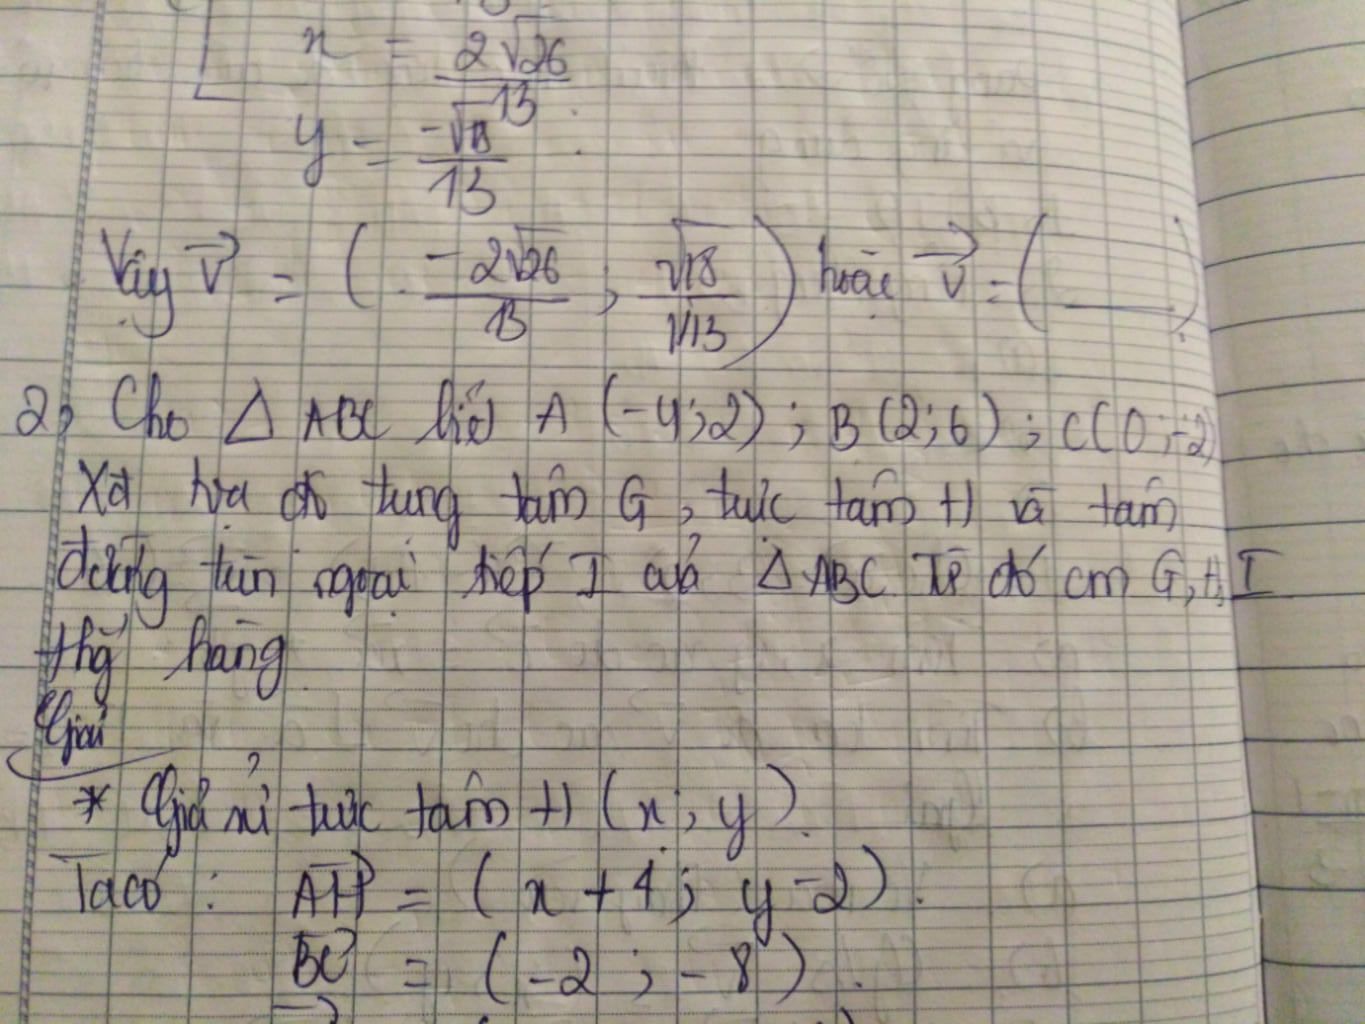 x = 2√26 / 13
y = -√13 / 13
Vậy v⃗ = ( -2√26 / 13 ; √18 / √13 ) hoặc v⃗ = ( )
2, Cho △ ABC biết A (-4;2) ; B (2;6) ; C(0;-2)
Xđ tọa độ trung tâm G, trực tâm H và tâm
đường tròn ngoại tiếp I của △ ABC. Từ đó cm G, H, I
thg hàng.
Giải
* Giả sử trực tâm H (x ; y).
Ta có : AH⃗ = (x + 4 ; y - 2).
BC⃗ = (-2 ; -8).